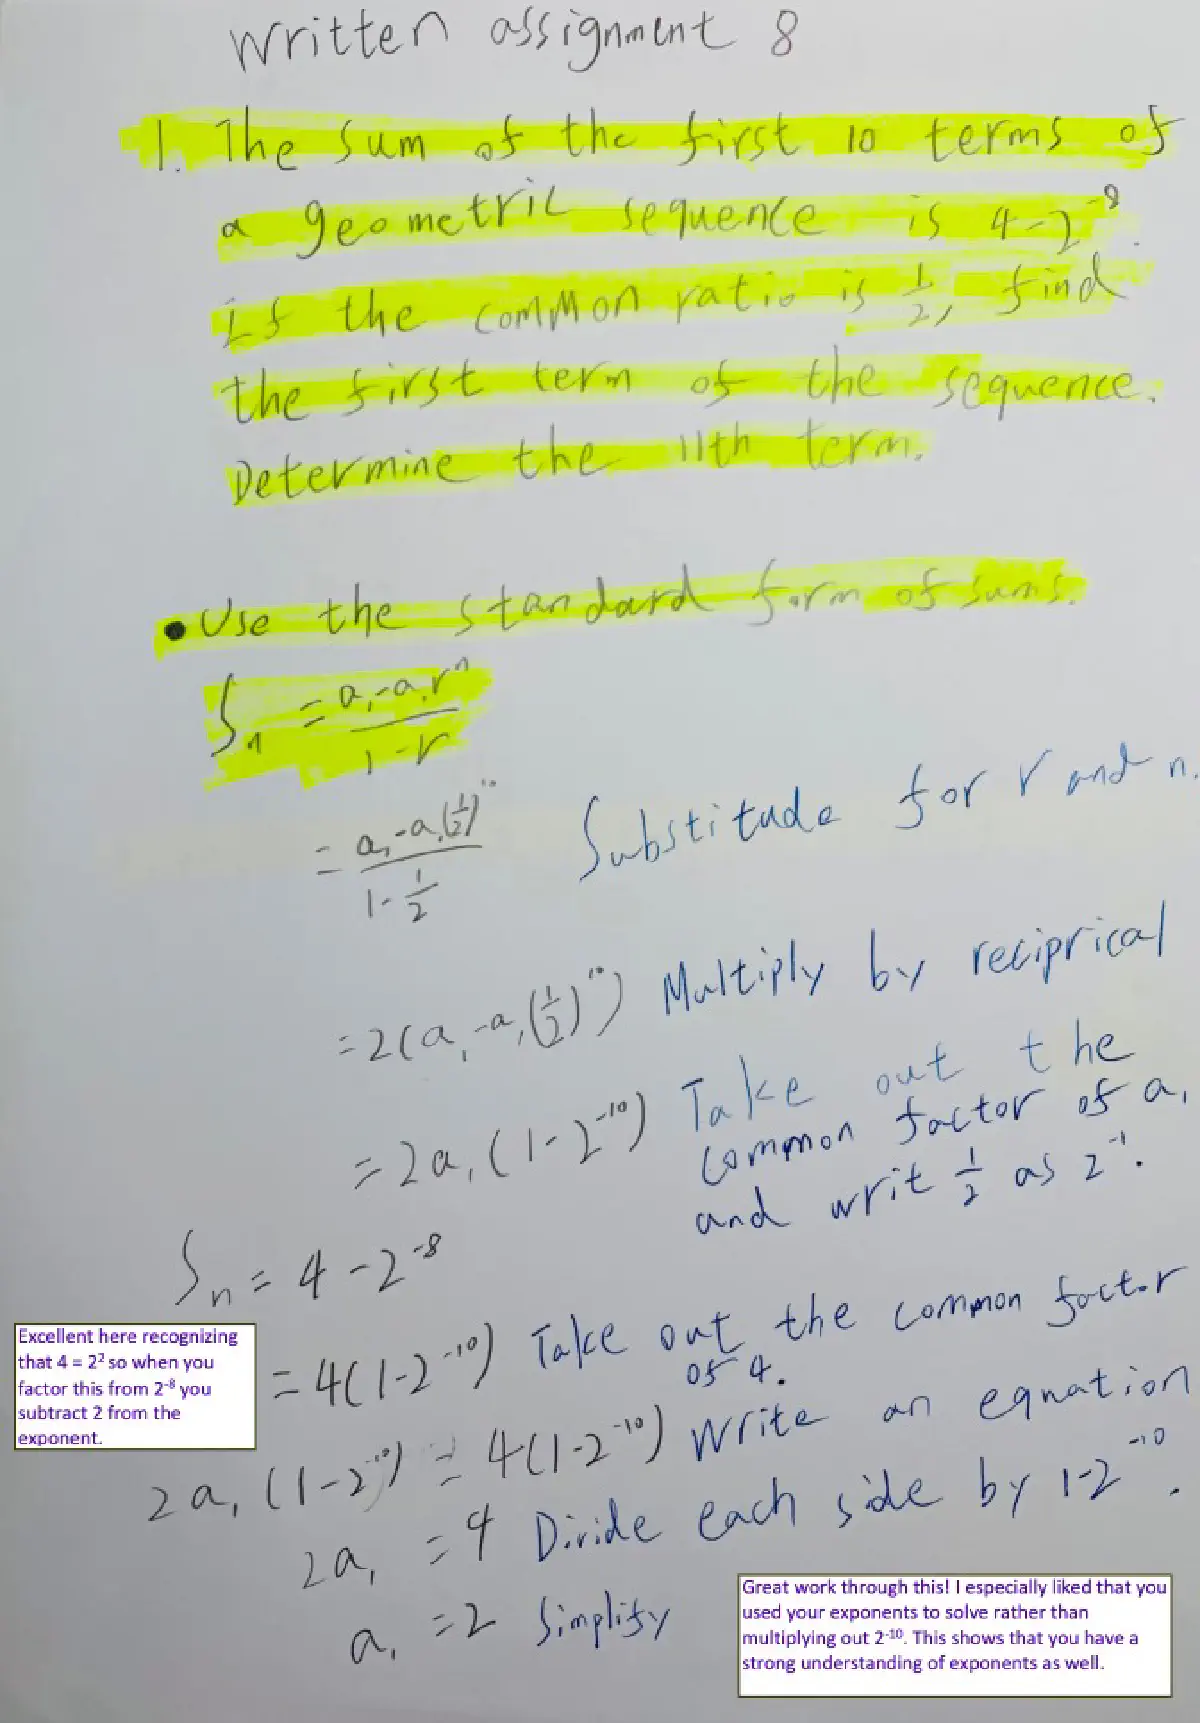 Written assignment 8
1. The sum of the first 10 terms of
a geometric sequence is 4-2⁻⁸.
If the common ratio is 1/2, find
the first term of the sequence.
Determine the 11th term.
• Use the standard form of sums.
Sₙ = (a₁-a₁rⁿ)/(1-r)
= (a₁-a₁(1/2)¹⁰)/(1-1/2) Substitude for r and n.
= 2(a₁-a₁(1/2)¹⁰) Multiply by reciprical
= 2a₁(1-2⁻¹⁰) Take out the
common factor of a₁
and writ 1/2 as 2⁻¹.
Sₙ = 4-2⁻⁸
= 4(1-2⁻¹⁰) Take out the common factor
of 4.
Excellent here recognizing
that 4 = 2² so when you
factor this from 2⁻⁸ you
subtract 2 from the
exponent.
2a₁(1-2⁻¹⁰) = 4(1-2⁻¹⁰) Write an eqnation
2a₁ = 4 Divide each side by 1-2⁻¹⁰.
a₁ = 2 Simplify
Great work through this! I especially liked that you
used your exponents to solve rather than
multiplying out 2⁻¹⁰. This shows that you have a
strong understanding of exponents as well.